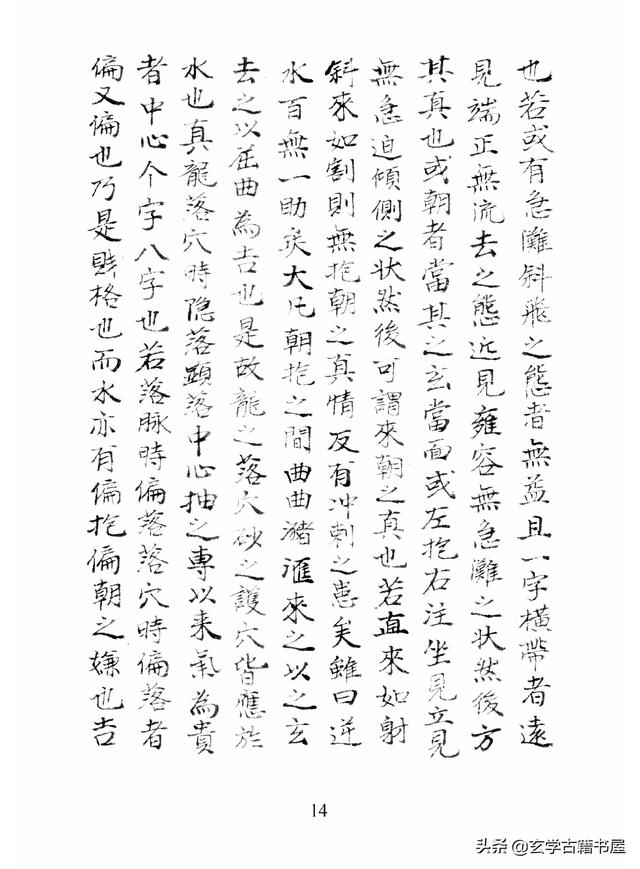 也若或有急灘斜飛之態者無益且一字橫帶者遠
見端正無流去之態近見雍容無急灘之狀然後方
其真也或朝者當其之玄當面或左抱右注坐見立見
無急迫傾側之狀然後可謂來朝之真也若直來如射
斜來如割則無抱朝之真情反有冲刺之患矣雖曰逆
水百無一助矣大凡朝抱之間曲曲瀦滙來之以之玄
去之以屈曲為吉也是故龍之落穴砂之護穴皆應於
水也真龍落穴時隐落顕落中心抽之專以来氣為貴
者中心个字八字也若落脉時偏落落穴時偏落者
偏又偏也乃是賎格也而水亦有偏抱偏朝之嫌也吉
14
头条 @玄学古籍书屋